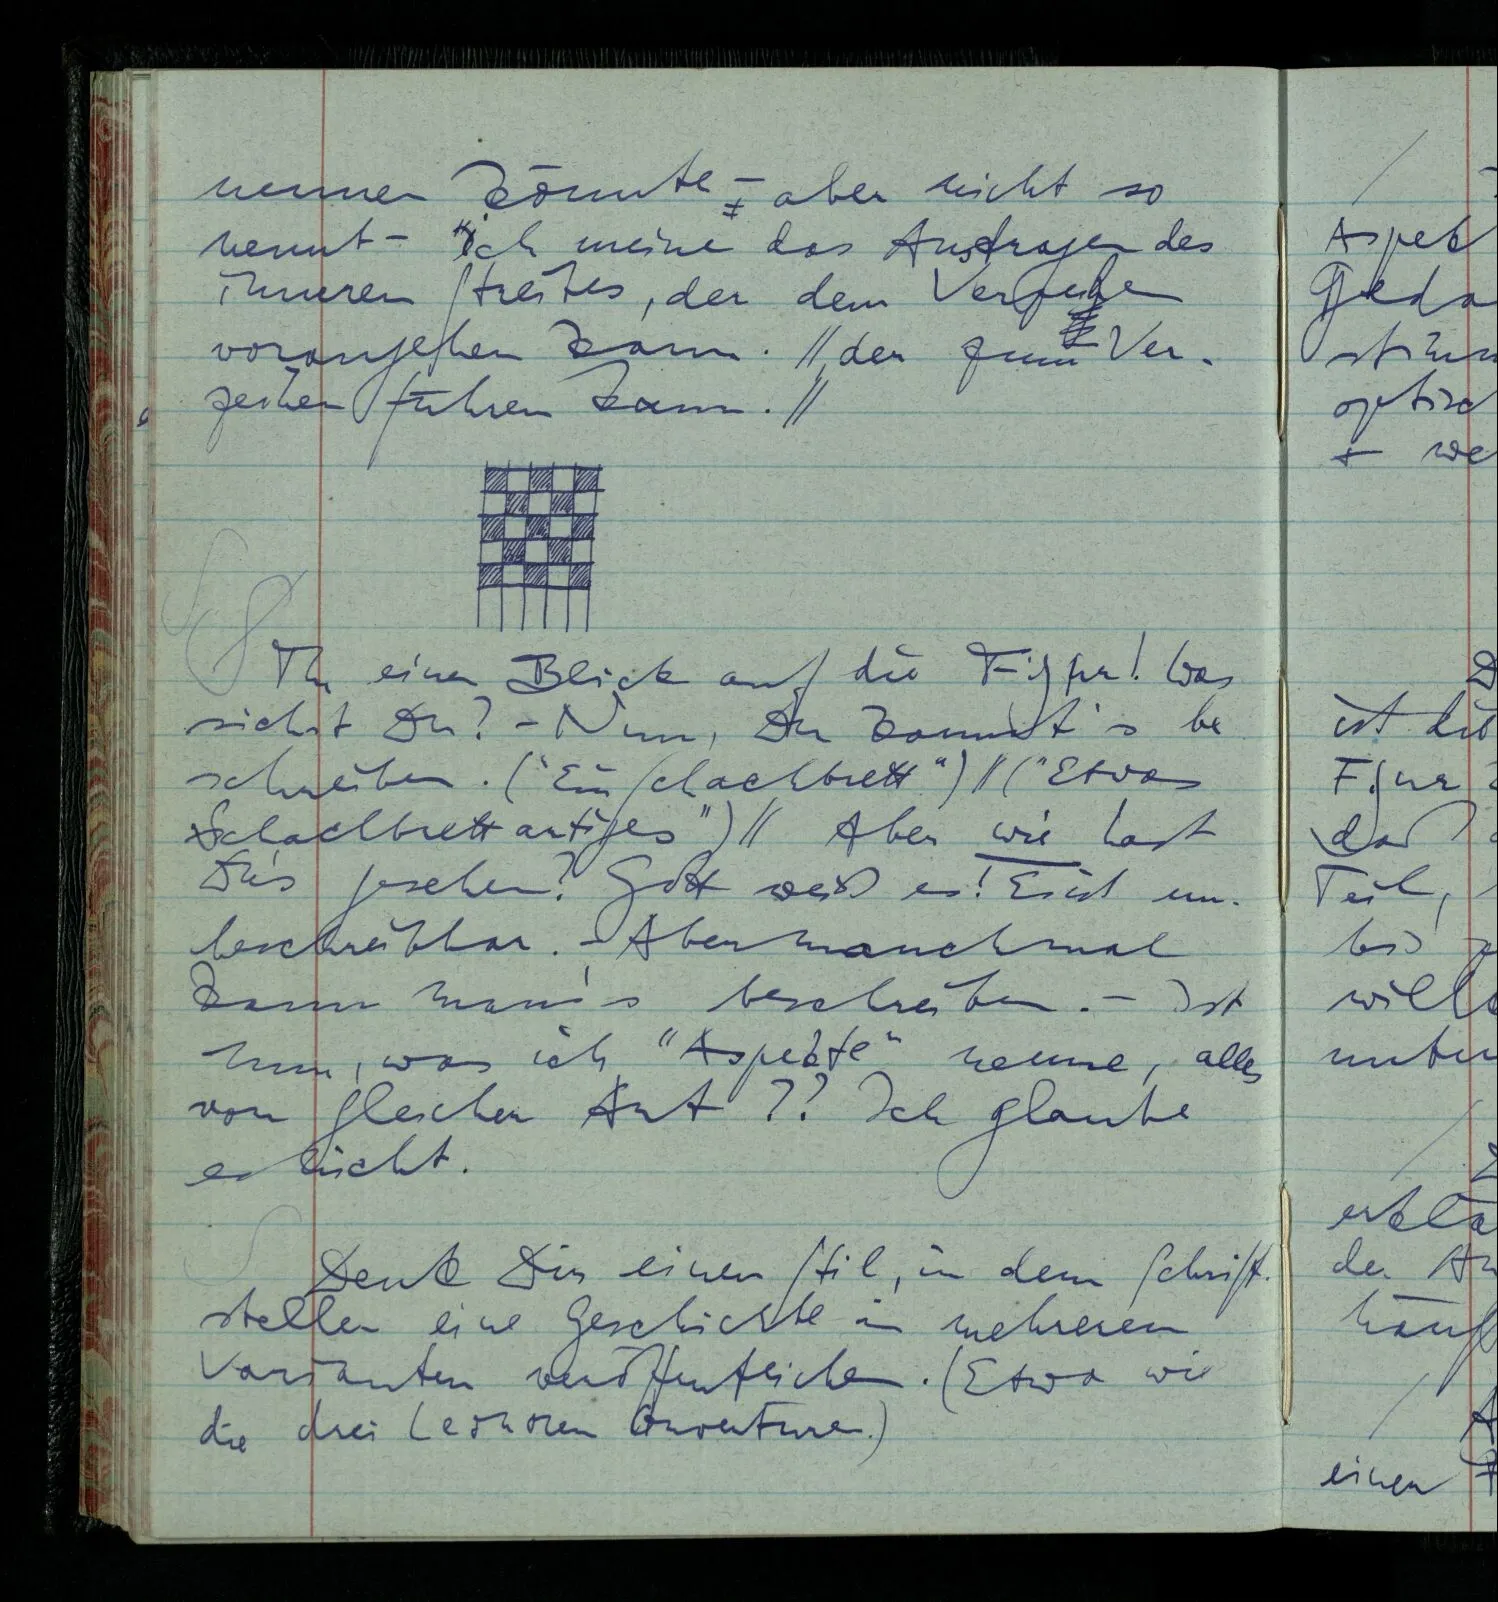 nennen könnte – aber nicht so
nennt – "ich meine das Austragen des
inneren Streites, der dem Verzeihen
vorangehen kann. // der zum Ver-
zeihen führen kann. //
Tu einen Blick auf die Figur! Was
siehst Du? – Nun, Du kannst's be
schreiben. ("Ein Schachbrett") // ("Etwas
Schachbrettartiges") // Aber wie hast
Du's gesehen? Gott weiß es! Es ist un-
beschreibbar. – Aber manchmal
kann man's beschreiben. – Ist
nun, was ich "Aspekte" nenne, alles
von gleicher Art?? Ich glaube
es nicht.
Denk Dir einen Stil, in dem Schrift-
steller eine Geschichte in mehreren
Varianten veröffentlichen. (Etwa wie
die drei Leonoren Ouverturen.)
Aspek
Geda
stimm
optisc
+ we
ist die
Figur
daß
Teil,
bis
will
unter
erklä
der
häuf
einen